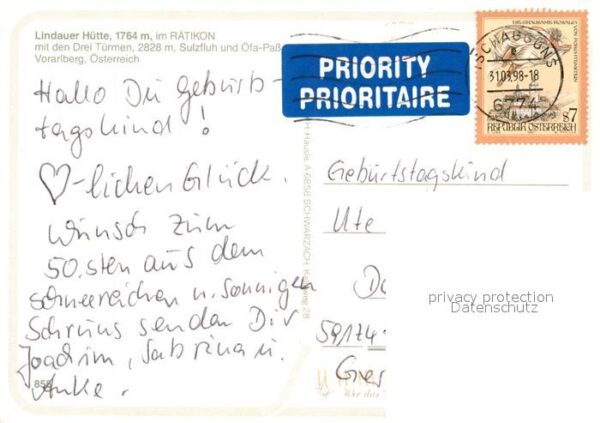 Lindauer Hütte, 1764 m, im RÄTIKON
mit den Drei Türmen, 2828 m, Sulzfluh und Öfa-Paß
Vorarlberg, Österreich
Hallo Du Geburts-
tagskind!
♡-lichen Glück.
wünsch zum
50.sten aus dem
schneereichen u. sonnigen
Schruns senden Dir
Joachim, Sabrina u.
Anke.
855
PRIORITY
PRIORITAIRE
SCHAGGUNS
31.03.98-18
6774
S7
REPUBLIK ÖSTERREICH
A 6858 SCHWARZACH
28
Geburtstagskind
Ute
59174
privacy protection
Datenschutz